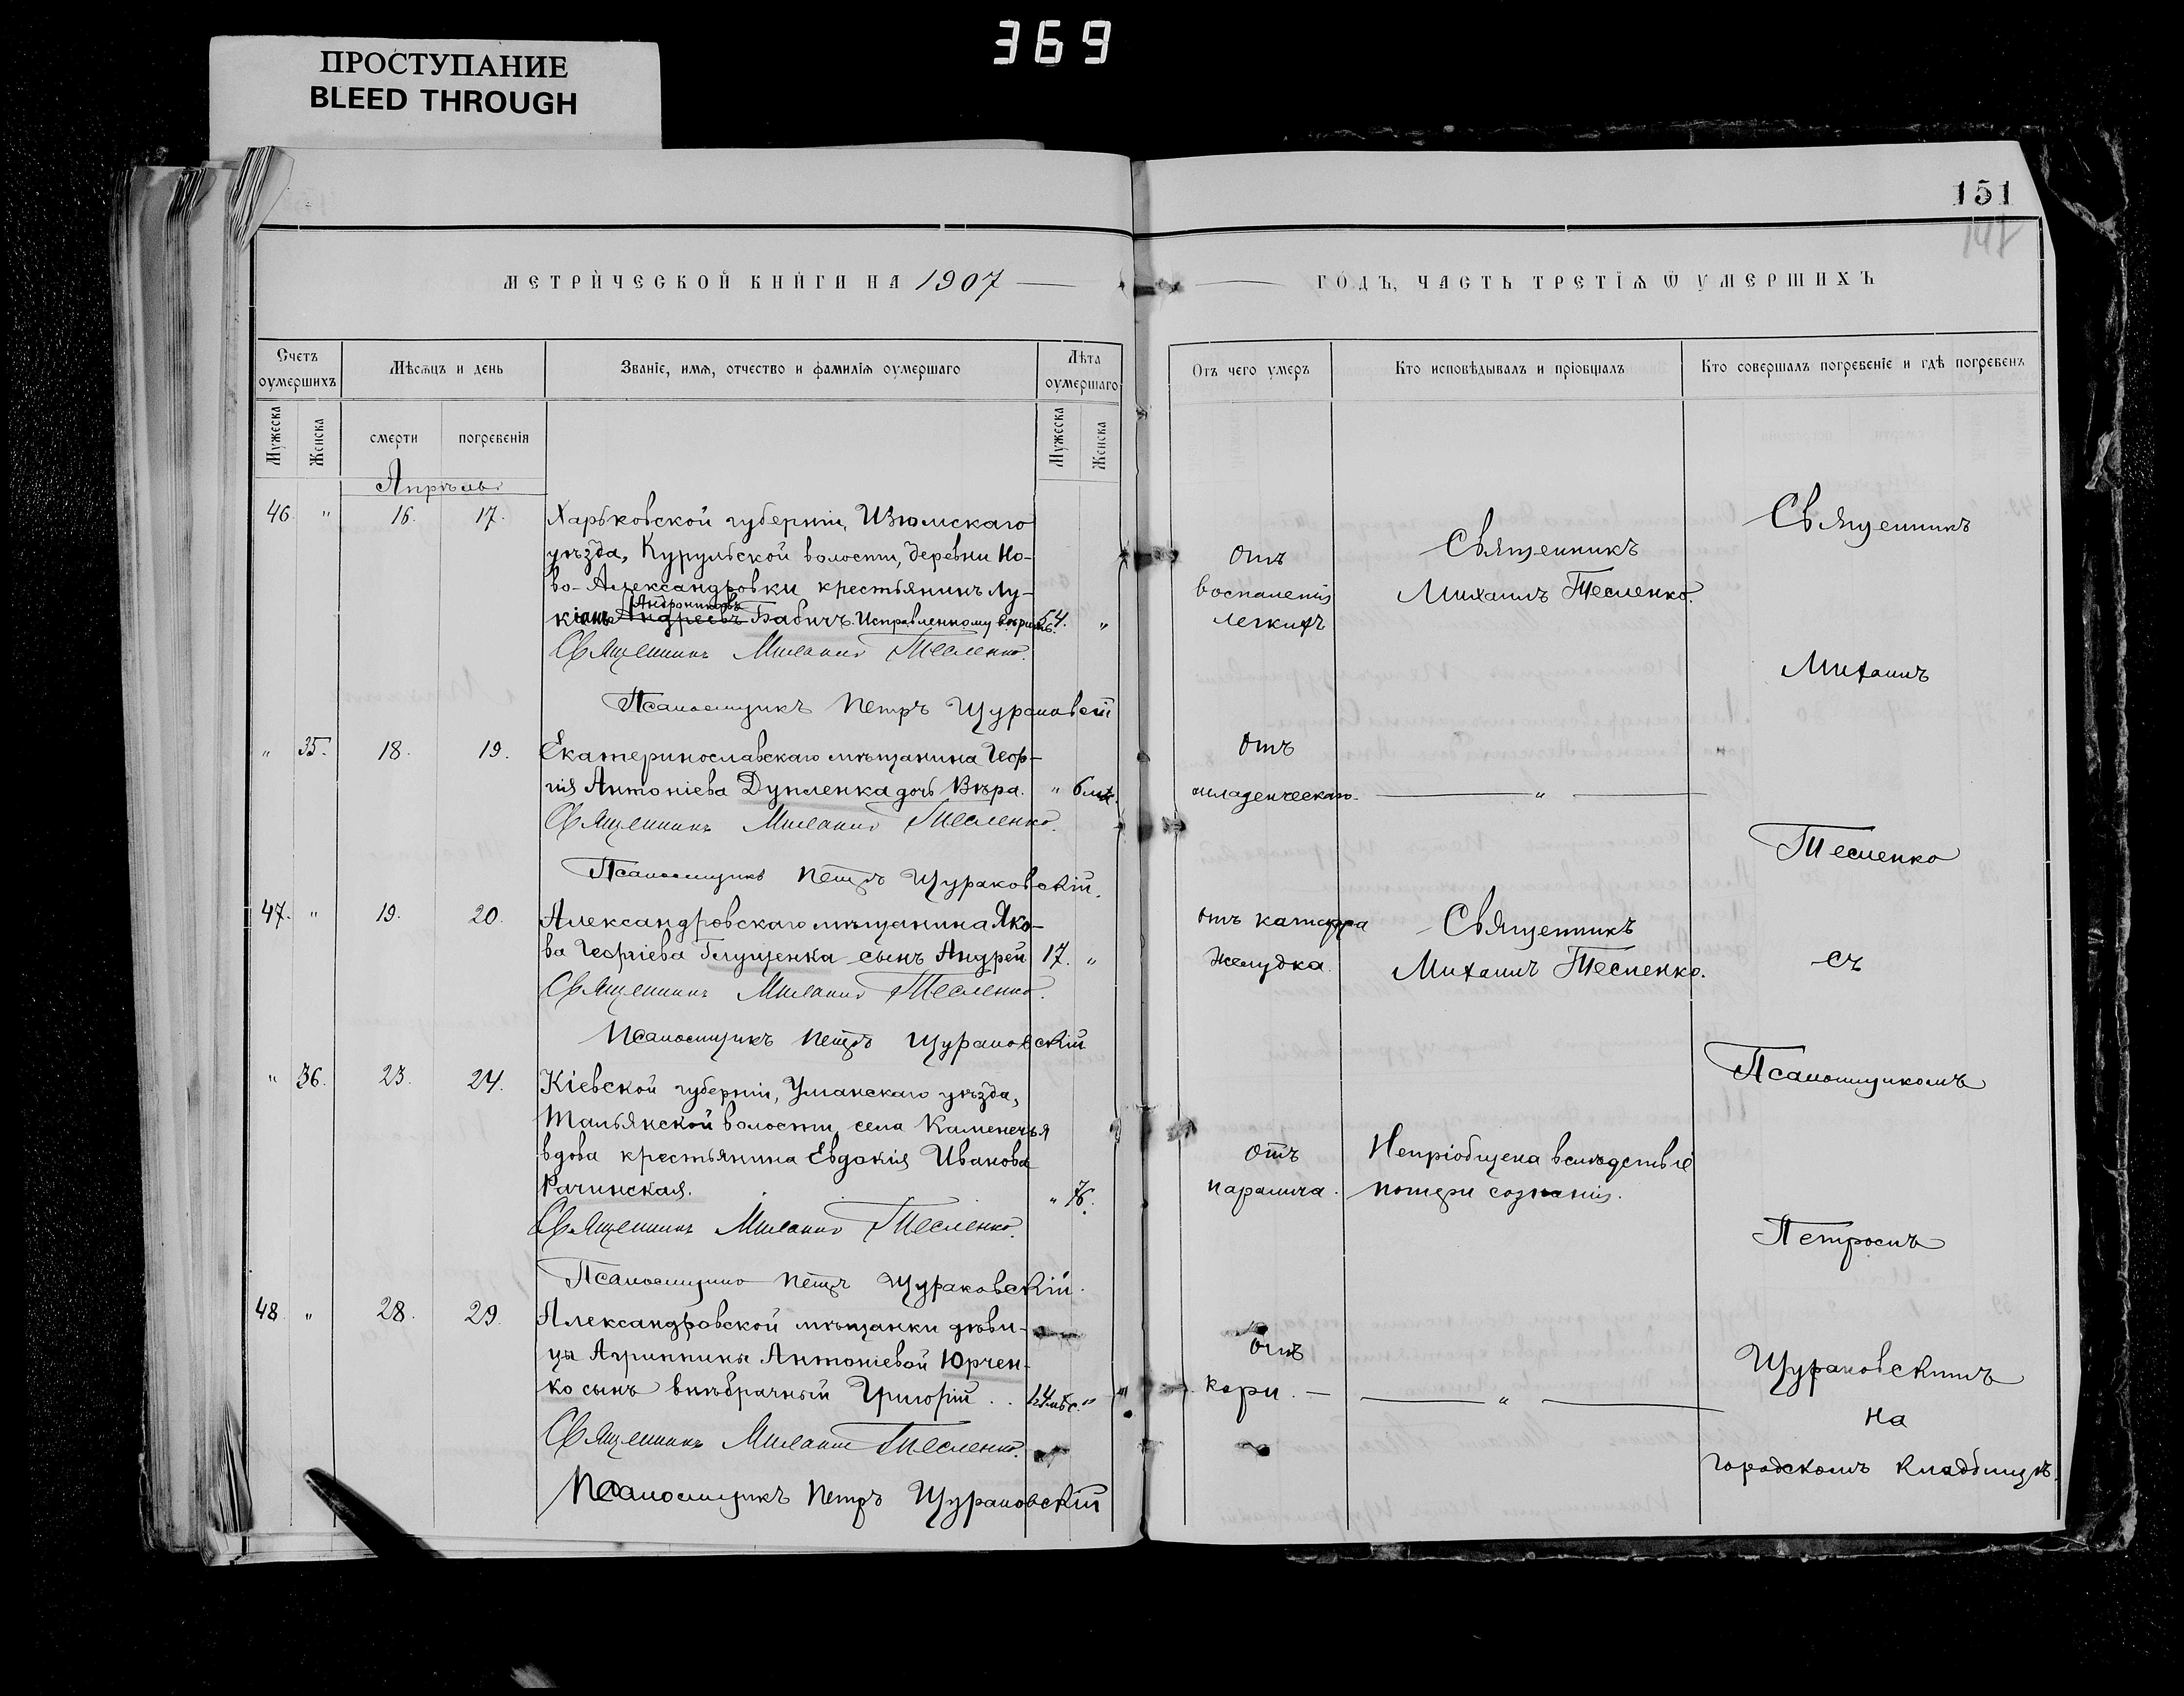 369
ПРОСТУПАНИЕ
BLEED THROUGH
151
МЕТРИ́ЧЕСКОЙ КНИ́ГИ НА 1907
ГО́ДЪ, ЧАСТЬ ТРЕТІѦ Ѿ УМЕРШИХЪ
Счетъ оумершихъ
Мѣсѧцъ и день
Званіе, имѧ, отчество и фамиліѧ оумершаго
Лѣта оумершаго
Отъ чего умеръ
Кто исповѣдывалъ и пріобщалъ
Кто совершалъ погребеніе и гдѣ погребенъ
Мужеска
Женска
смерти
погребенія
Мужеска
Женска
Апрѣль
46. " 16. 17. Харьковской губерніи, Изюмскаго
уѣзда, Курульской волости, деревни Но-
во-Александровки крестьянинъ Лу-
Андрониковъ
кіанъ Андреевъ Бабичъ. Исправленному вѣрить. 54. "
Священникъ Михаилъ Тесленко.
Псаломщикъ Петръ Щураковскій
отъ
воспаленія
легкихъ
Священникъ
Михаилъ Тесленко.
" 35. 18. 19. Екатеринославскаго мѣщанина Геор-
гія Антоніева Дупленка дочь Вѣра. " 6 мѣс.
Священникъ Михаилъ Тесленко.
Псаломщикъ Петръ Щураковскій.
отъ
младенческаго "
47. " 19. 20. Александровскаго мѣщанина Яко-
ва Георгіева Глущенка сынъ Андрей 17. "
Священникъ Михаилъ Тесленко.
Псаломщикъ Петръ Щураковскій
отъ катарра
желудка.
Священникъ
Михаилъ Тесленко.
" 36. 23. 24. Кіевской губерніи, Уманскаго уѣзда,
Тальянской волости села Каменечья
вдова крестьянина Евдокія Иванова
Рачинская. " 76.
Священникъ Михаилъ Тесленко.
Псаломщикъ Петръ Щураковскій.
отъ
паралича.
Непріобщена вслѣдствіе
потери сознанія.
48. " 28. 29. Александровской мѣщанки дѣви-
цы Агриппины Антоніевой Юрчен-
ко сынъ внѣбрачный Григорій . . 14 мѣс. "
Священникъ Михаилъ Тесленко.
Псаломщикъ Петръ Щураковскій
отъ
кори. "
Священникъ
Михаилъ
Тесленко
съ
Псаломщикомъ
Петромъ
Щураковскимъ
на
городскомъ кладбищѣ.